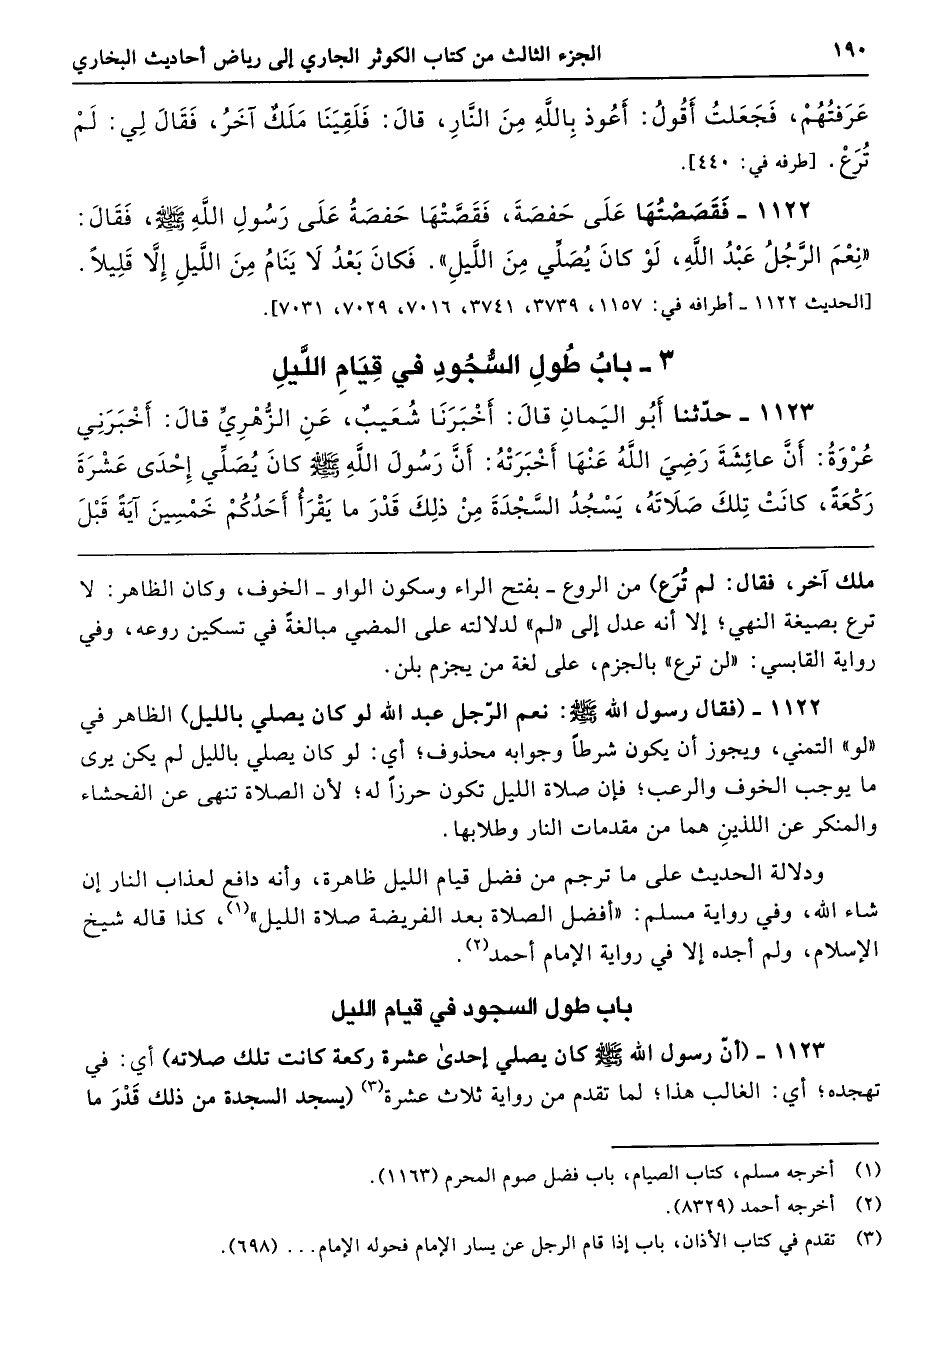 ١٩٠ الجزء الثالث من كتاب الكوثر الجاري إلى رياض أحاديث البخاري
عَرَفتُهُمْ، فَجَعَلتُ أَقُولُ: أَعُوذ بِاللَّهِ مِنَ النَّارِ، قالَ: فَلَقِيَنَا مَلَكٌ آخَرُ، فَقَالَ لِي: لَمْ
تُرَعْ. [طرفه في: ٤٤٠].
١١٢٢ ـ فَقَصَصْتُهَا عَلَى حَفصَةَ، فَقَصَّتْهَا حَفصَةُ عَلَى رَسُولِ اللَّهِ ﷺ، فَقَالَ:
«نِعْمَ الرَّجُلُ عَبْدُ اللَّهِ، لَوْ كانَ يُصَلِّي مِنَ اللَّيلِ». فَكانَ بَعْدُ لَا يَنَامُ مِنَ اللَّيلِ إِلَّا قَلِيلاً.
[الحديث ١١٢٢ ـ أطرافه في: ١١٥٧، ٣٧٣٩، ٣٧٤١، ٧٠١٦، ٧٠٢٩، ٧٠٣١].
٣ ـ بابُ طُولِ السُّجُودِ في قِيَامِ اللَّيلِ
١١٢٣ ـ حدّثنا أَبُو اليَمانِ قالَ: أَخْبَرَنَا شُعَيبٌ، عَنِ الزُّهْرِيِّ قالَ: أَخْبَرَنِي
عُرْوَةُ: أَنَّ عائِشَةَ رَضِيَ اللَّهُ عَنْهَا أَخْبَرَتْهُ: أَنَّ رَسُولَ اللَّهِ ﷺ كانَ يُصَلِّي إِحْدَى عَشْرَةَ
رَكْعَةً، كانَتْ تِلكَ صَلَاتَهُ، يَسْجُدُ السَّجْدَةَ مِنْ ذلِكَ قَدْرَ ما يَقْرَأُ أَحَدُكُمْ خَمْسِينَ آيَةً قَبْلَ
ملك آخر، فقال: لم تُرَع) من الروع ـ بفتح الراء وسكون الواو ـ الخوف، وكان الظاهر: لا
ترع بصيغة النهي؛ إلا أنه عدل إلى «لم» لدلالته على المضي مبالغةً في تسكين روعه، وفي
رواية القابسي: «لن ترع» بالجزم، على لغة من يجزم بلن.
١١٢٢ ـ (فقال رسول الله ﷺ: نعم الرّجل عبد الله لو كان يصلي بالليل) الظاهر في
«لو» التمني، ويجوز أن يكون شرطاً وجوابه محذوف؛ أي: لو كان يصلي بالليل لم يكن يرى
ما يوجب الخوف والرعب؛ فإن صلاة الليل تكون حرزاً له؛ لأن الصلاة تنهى عن الفحشاء
والمنكر عن اللذينِ هما من مقدمات النار وطلابها.
ودلالة الحديث على ما ترجم من فضل قيام الليل ظاهرة، وأنه دافع لعذاب النار إن
شاء الله، وفي رواية مسلم: «أفضل الصلاة بعد الفريضة صلاة الليل»(١)، كذا قاله شيخ
الإسلام، ولم أجده إلا في رواية الإمام أحمد(٢).
باب طول السجود في قيام الليل
١١٢٣ ـ (أنّ رسول الله ﷺ كان يصلي إحدىٰ عشرة ركعة كانت تلك صلاته) أي: في
تهجده؛ أي: الغالب هذا؛ لما تقدم من رواية ثلاث عشرة(٣) (يسجد السجدة من ذلك قَدْرَ ما
(١) أخرجه مسلم، كتاب الصيام، باب فضل صوم المحرم (١١٦٣).
(٢) أخرجه أحمد (٨٣٢٩).
(٣) تقدم في كتاب الأذان، باب إذا قام الرجل عن يسار الإمام فحوله الإمام... (٦٩٨).